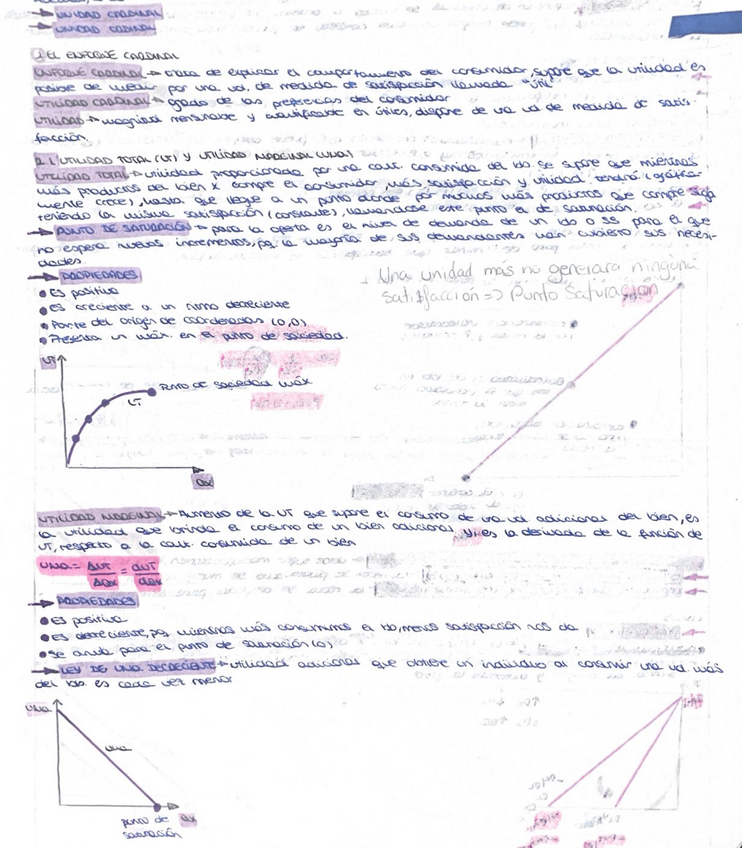 UTILIDAD CARDINAL
UTILIDAD ORDINAL
1) EL ENFOQUE CARDINAL
ENFOQUE CARDINAL → trata de explicar el comportamiento del consumidor, supone que la utilidad es
posible de medir por una ud. de medida de satisfacción llamada "útil"
UTILIDAD CARDINAL → grado de las preferencias del consumidor
UTILIDAD → magnitud mensurable y cuantificable en útiles, dispone de una ud de medida de satis-
facción.
2.1. UTILIDAD TOTAL (UT) Y UTILIDAD MARGINAL (UMa)
UTILIDAD TOTAL → utilidad proporcionada por una cant. consumida del bo. Se supone que mientras
más productos del bien X compre el consumidor, más satisfacción y utilidad tendrá (gráfica-
mente crece), hasta que llegue a un punto donde por muchos más productos que compre siga
teniendo la misma satisfacción (constante), llamándose este punto el de saturación.
PUNTO DE SATURACIÓN → para la oferta es el nivel de demanda de un bo o ss para el que
no espera nuevos incrementos, pq la mayoría de sus demandantes han cubierto sus necesi-
dades.
PROPIEDADES
• Es positiva
• Es creciente a un ritmo decreciente
• Parte del origen de coordenadas (0,0)
• Presenta un máx. en el punto de saciedad.
Una unidad más no generará ninguna
satisfacción => Punto Saturación
UT
PUNTO DE SACIEDAD MÁX
UT
Qx
UTILIDAD MARGINAL → Aumento de la UT que supone el consumo de una ud adicional del bien, es
la utilidad que brinda el consumo de un bien adicional y es la derivada de la función de
UT, respecto a la cant. consumida de un bien
UMa = ΔUT/ΔQx = dUT/dQx
PROPIEDADES
• Es positiva
• Es decreciente, pq mientras más consumimos el bo, menos satisfacción nos da
• Se anula para el punto de saturación (0)
LEY DE UMa DECRECIENTE → utilidad adicional que obtiene un individuo al consumir una ud más
del bo. es cada vez menor
UMa
UMa
punto de
saturación
Qx